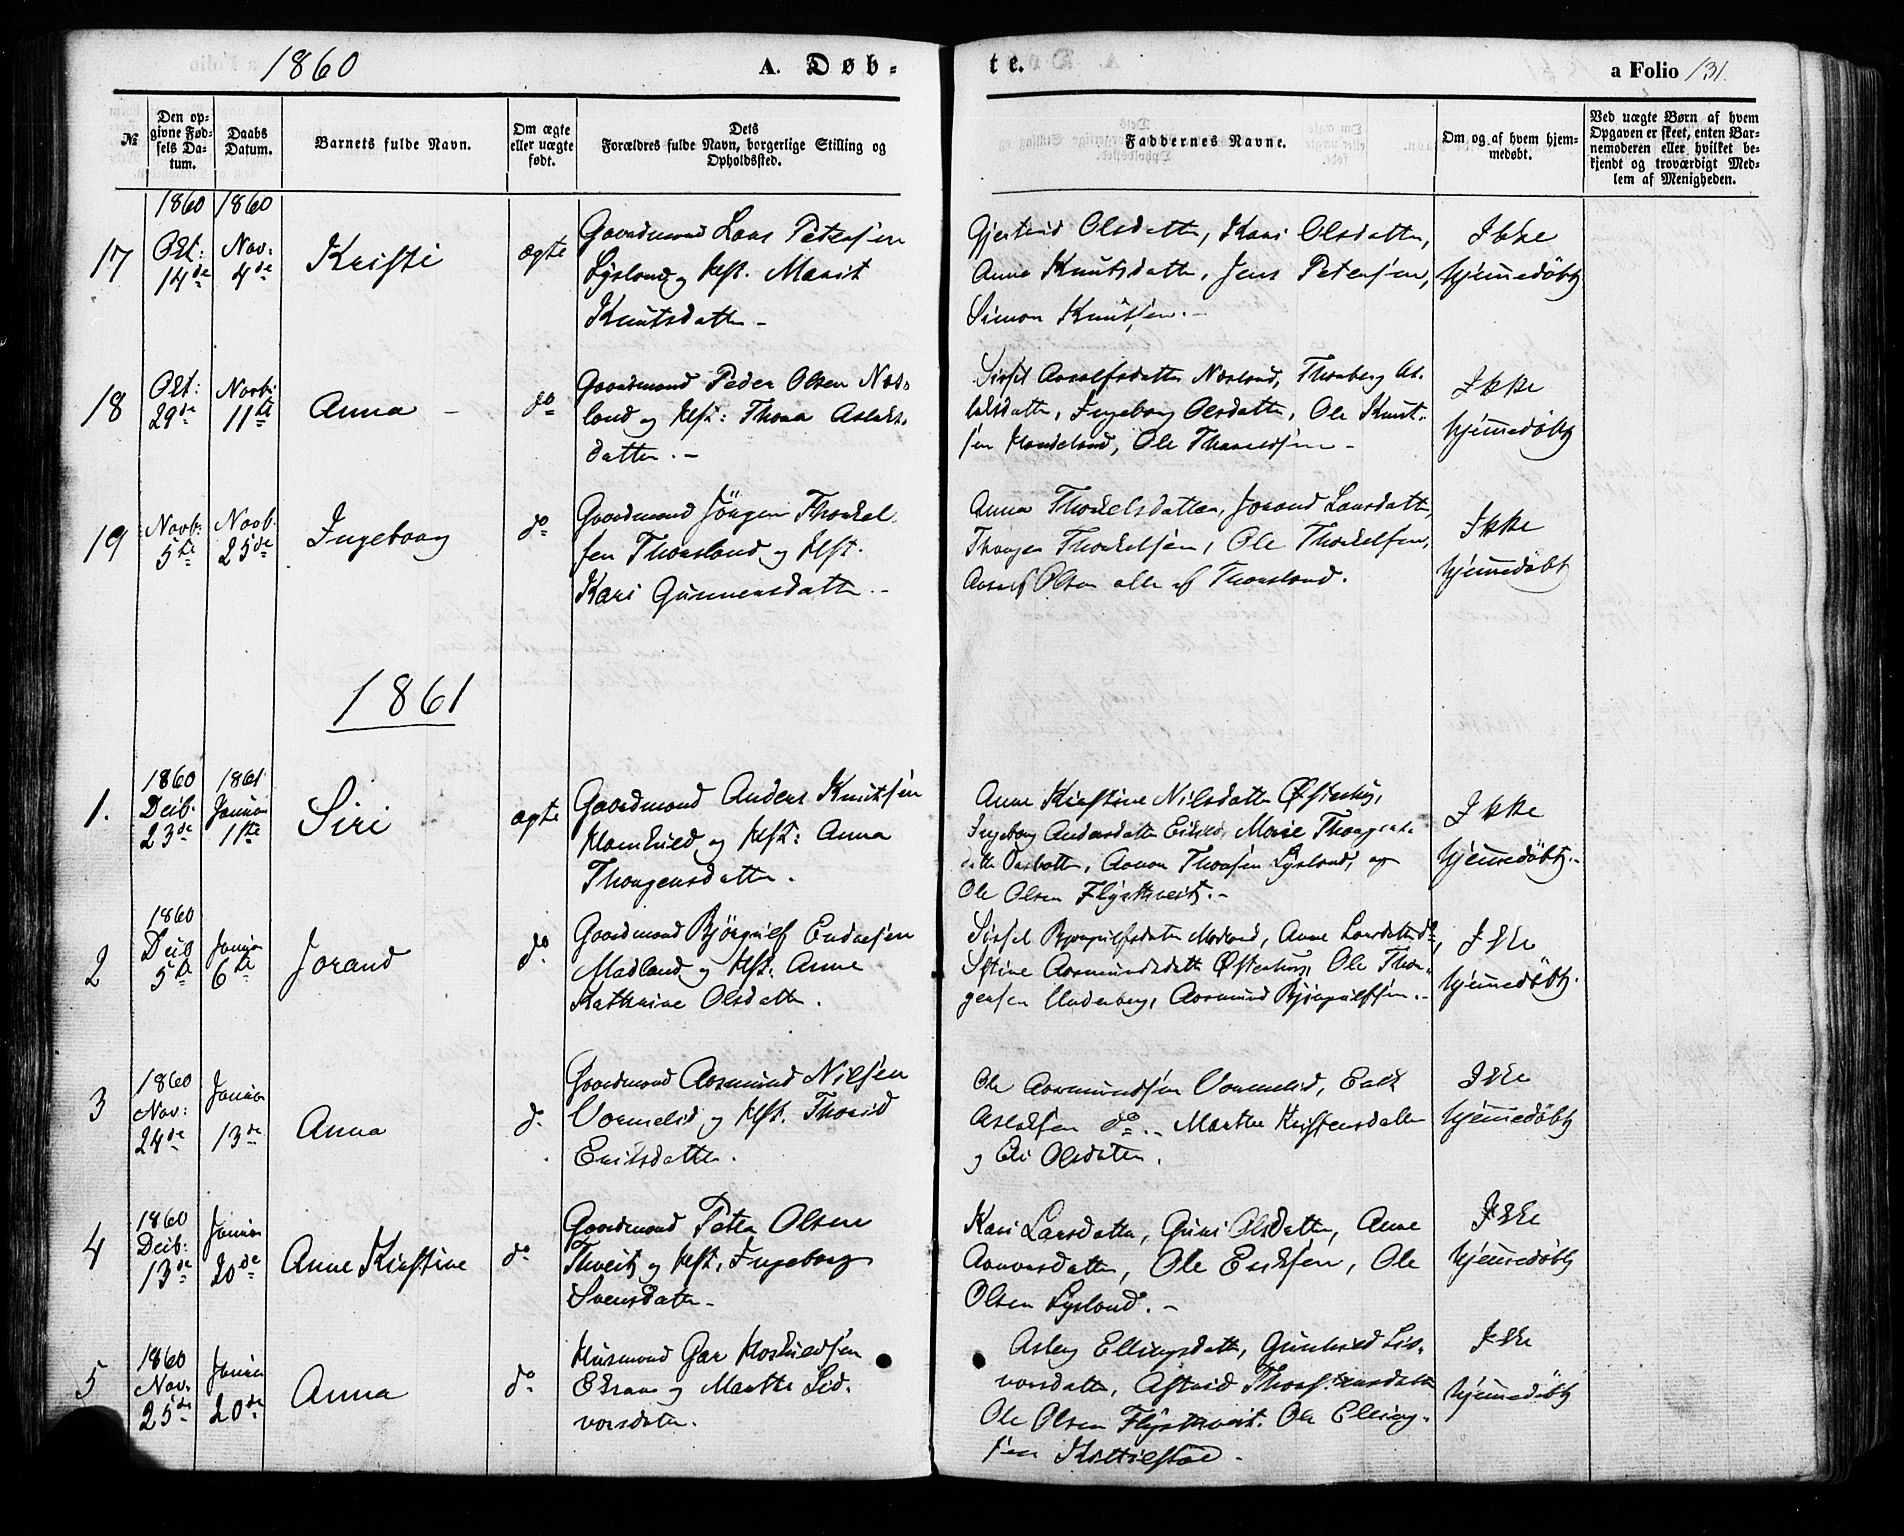 1860
A. Døb-
te.
a Folio 131.
№
Den op-
givne Fød-
sels Da-
tum.
Daabs
Datum.
Barnets fulde Navn.
Om ægte
eller uægte
født.
Dets
Forældres fulde Navn, borgerlige Stilling og
Opholdssted.
Faddernes Navne.
Om og af hvem hjem-
medøbt.
Ved uægte Børn af hvem
Opgaven er skeet, enten Bar-
nemoderen eller hvilket be-
kjendt og troværdigt Med-
lem af Menigheden.
1860 1860
17
Okt:
14de
Nov.
4de
Kristi
ægte
Gaardmand Lars Petersen
Lysland og Hst. Marit
Knutsdatter -
Gjertrud Olsdatter, Kari Olsdatter,
Anna Knutsdatter, Jens Petersen,
Simon Knutsen. -
Ikke
hjemmedøbt
18
Okt:
29de
Novb:
11te
Anna -
do
Gaardmand Peder Olsen Nøs-
land og Hst: Thora Aslaks-
datter. -
Sissel Aasulfsdatter Nøsland, Thorberg As-
laksdatter, Ingeborg Olsdatter, Ole Knut-
sen Handeland, Ole Thoresen -
Ikke
hjemmedøbt
19
Novb:
5te
Novb.
25de
Ingeborg
do
Gaardmand Jörgen Thorkel-
sen Thorsland og Hst.
Kari Gunnersdatter -
Anna Thorkelsdatter, Jorand Larsdatter,
Thorger Thorkelsen, Ole Thorkelsen,
Aasulf Olsen alle af Thorsland.
Ikke
hjemmedøbt
1861
1.
1860
Decb.
23de
1861
Januar
1ste
Siri
ægte
Gaardmand Anders Knutsen
Homheld og Hst: Anna
Thorgersdatter.
Anne Kirstine Nilsdatter Østerhus,
Ingeborg Andersdatter Eikeö, Marie Thorgers-
datter, Aanon Thorsen Lysland, og
Ole Olsen Flystveit. -
Ikke
hjemmedøbt. -
2
1860
Decb
5te
Januar
6te
Jorand
do
Gaardmand Bjørgulf Endresen
Madland og Hst. Anne
Kathrine Olsdatter.
Sissel Bjørgulfsdatter Madland, Anne Larsdatter do,
Stine Aasmundsdatter Østerhus, Ole Thor-
gersen Underberg, Aasmund Bjørgulfsen. -
Ikke
hjemmedøbt.
3
1860
Nov:
24de
Januar
13de
Anna
do
Gaardmand Aasmund Nilsen
Vormelid og Hst. Thorid
Eriksdatter.
Ole Aasmundsen Vormelid, Erik
Aslaksen do. - Marthe Kristensdatter
og Eli Olsdatter.
Ikke
hjemmedøbt
4
1860
Decb:
13de
Januar
20de
Anne Kirstine
do
Gaardmand Peter Olsen
Thveit og Hst. Ingeborg
Svensdatter -
Kari Larsdatter, Guri Olsdatter, Anne
Aanensdatter, Ole Eriksen, Ole
Olsen Lysland. -
Ikke
hjemmedøbt
5
1860
Nov.
25de
Januar
20de
Anna
do
Husmand Hoskuldsen
Ekraa og Marthe Sid-
vorsdatter.
Aslög Ellingsdatter, Gunhild Sid-
vorsdatter, Astrid Thorstensdatter
Ole Olsen Flystveit. Ole Elling-
sen Kettilstad -
Ikke
hjemmedøbt